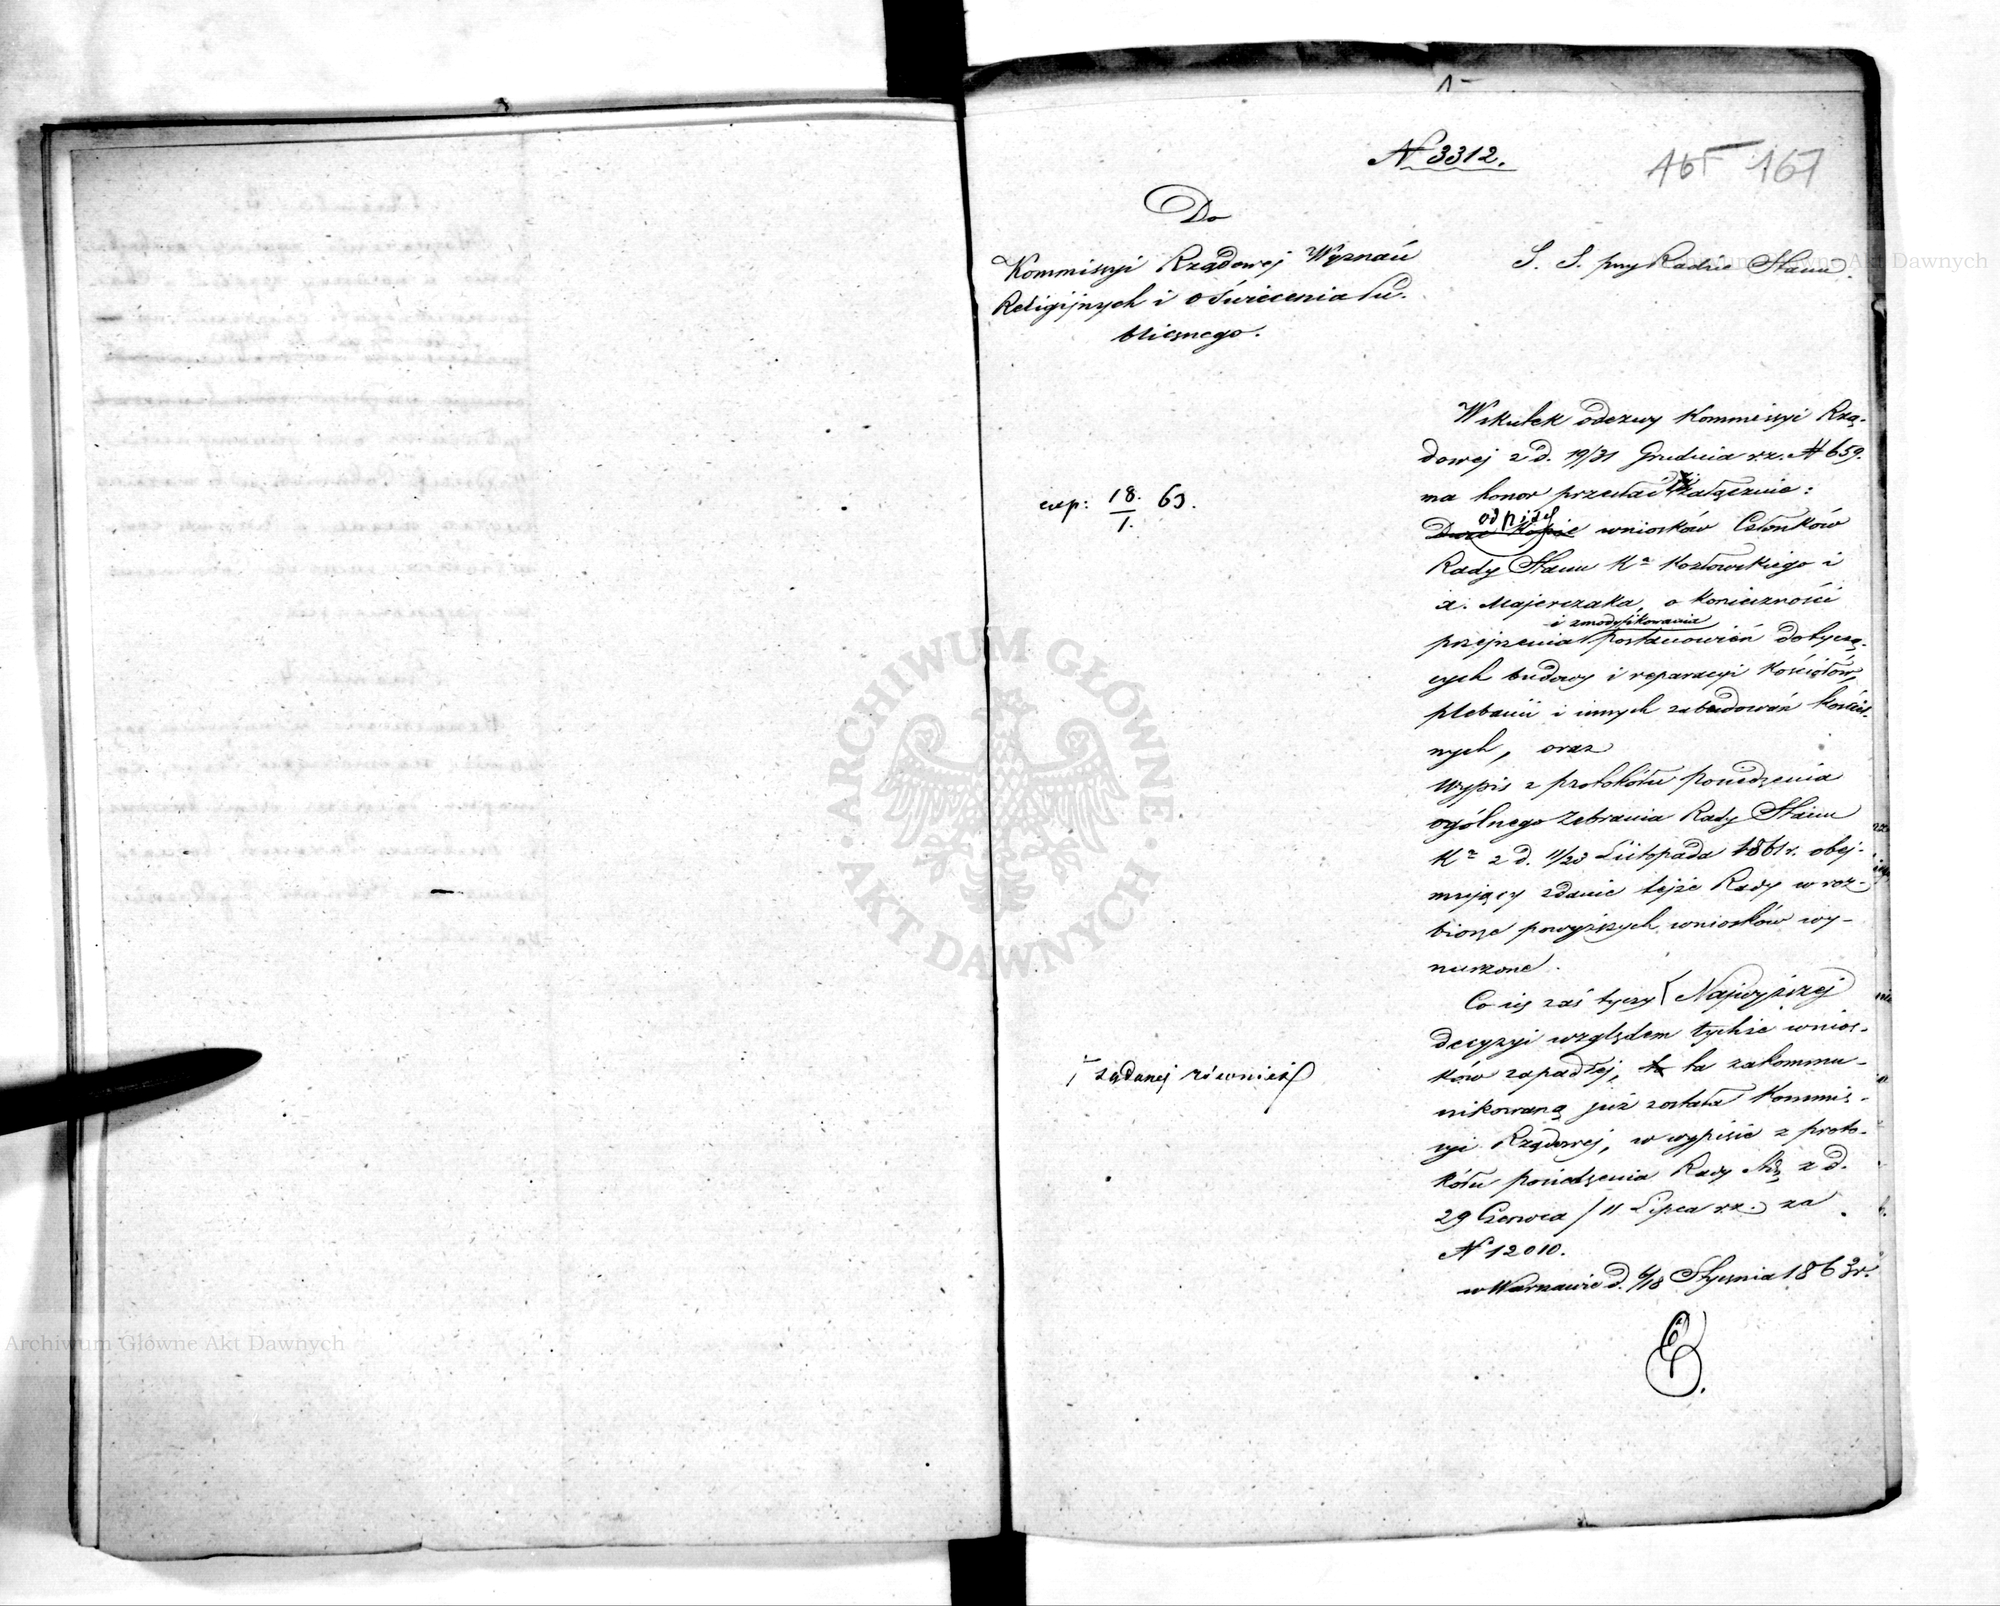 N 3312.
167
Do
Kommissyi Rządowej Wyznań
Religijnych i Oświecenia Pu-
blicznego.
S. S. przy Radzie Stanu.
exp: 18/1. 63.
Wskutek odezwy Kommissyi Rzą-
dowej z d. 19/31 Grudnia r.z. N 659.
ma honor przesłać załącznie:
odpisy
Dwie kopie wniosków Członków
Rady Stanu Ka Kozłowskiego i
x. Majerczaka, o konieczności
i zmodyfikowania
przejrzenia postanowień dotyczą-
cych budowy i reparacyi kościołów,
plebanii i innych zabudowań kościel-
nych, oraz
Wypis z protokółu posiedzenia
ogólnego Zebrania Rady Stanu
Ka z d. 11/23 Listopada 1861 r. obej-
mujący zdanie tejże Rady w roz-
biorze powyższych wniosków wy-
nurzone.
Co się zaś tyczy Najwyższej
decyzyi względem tychże wnios-
ków zapadłej, ta zakommu-
nikowaną już została Kommis-
syi Rządowej, w wypisie z proto-
kółu posiedzenia Rady z d.
29 Czerwca / 11 Lipca r.z. za
N 12010.
w Warszawie d. 6/18 Stycznia 1863 r.
żądanej również
ARCHIWUM GŁÓWNE
AKT DAWNYCH
Archiwum Główne Akt Dawnych
Archiwum Główne Akt Dawnych